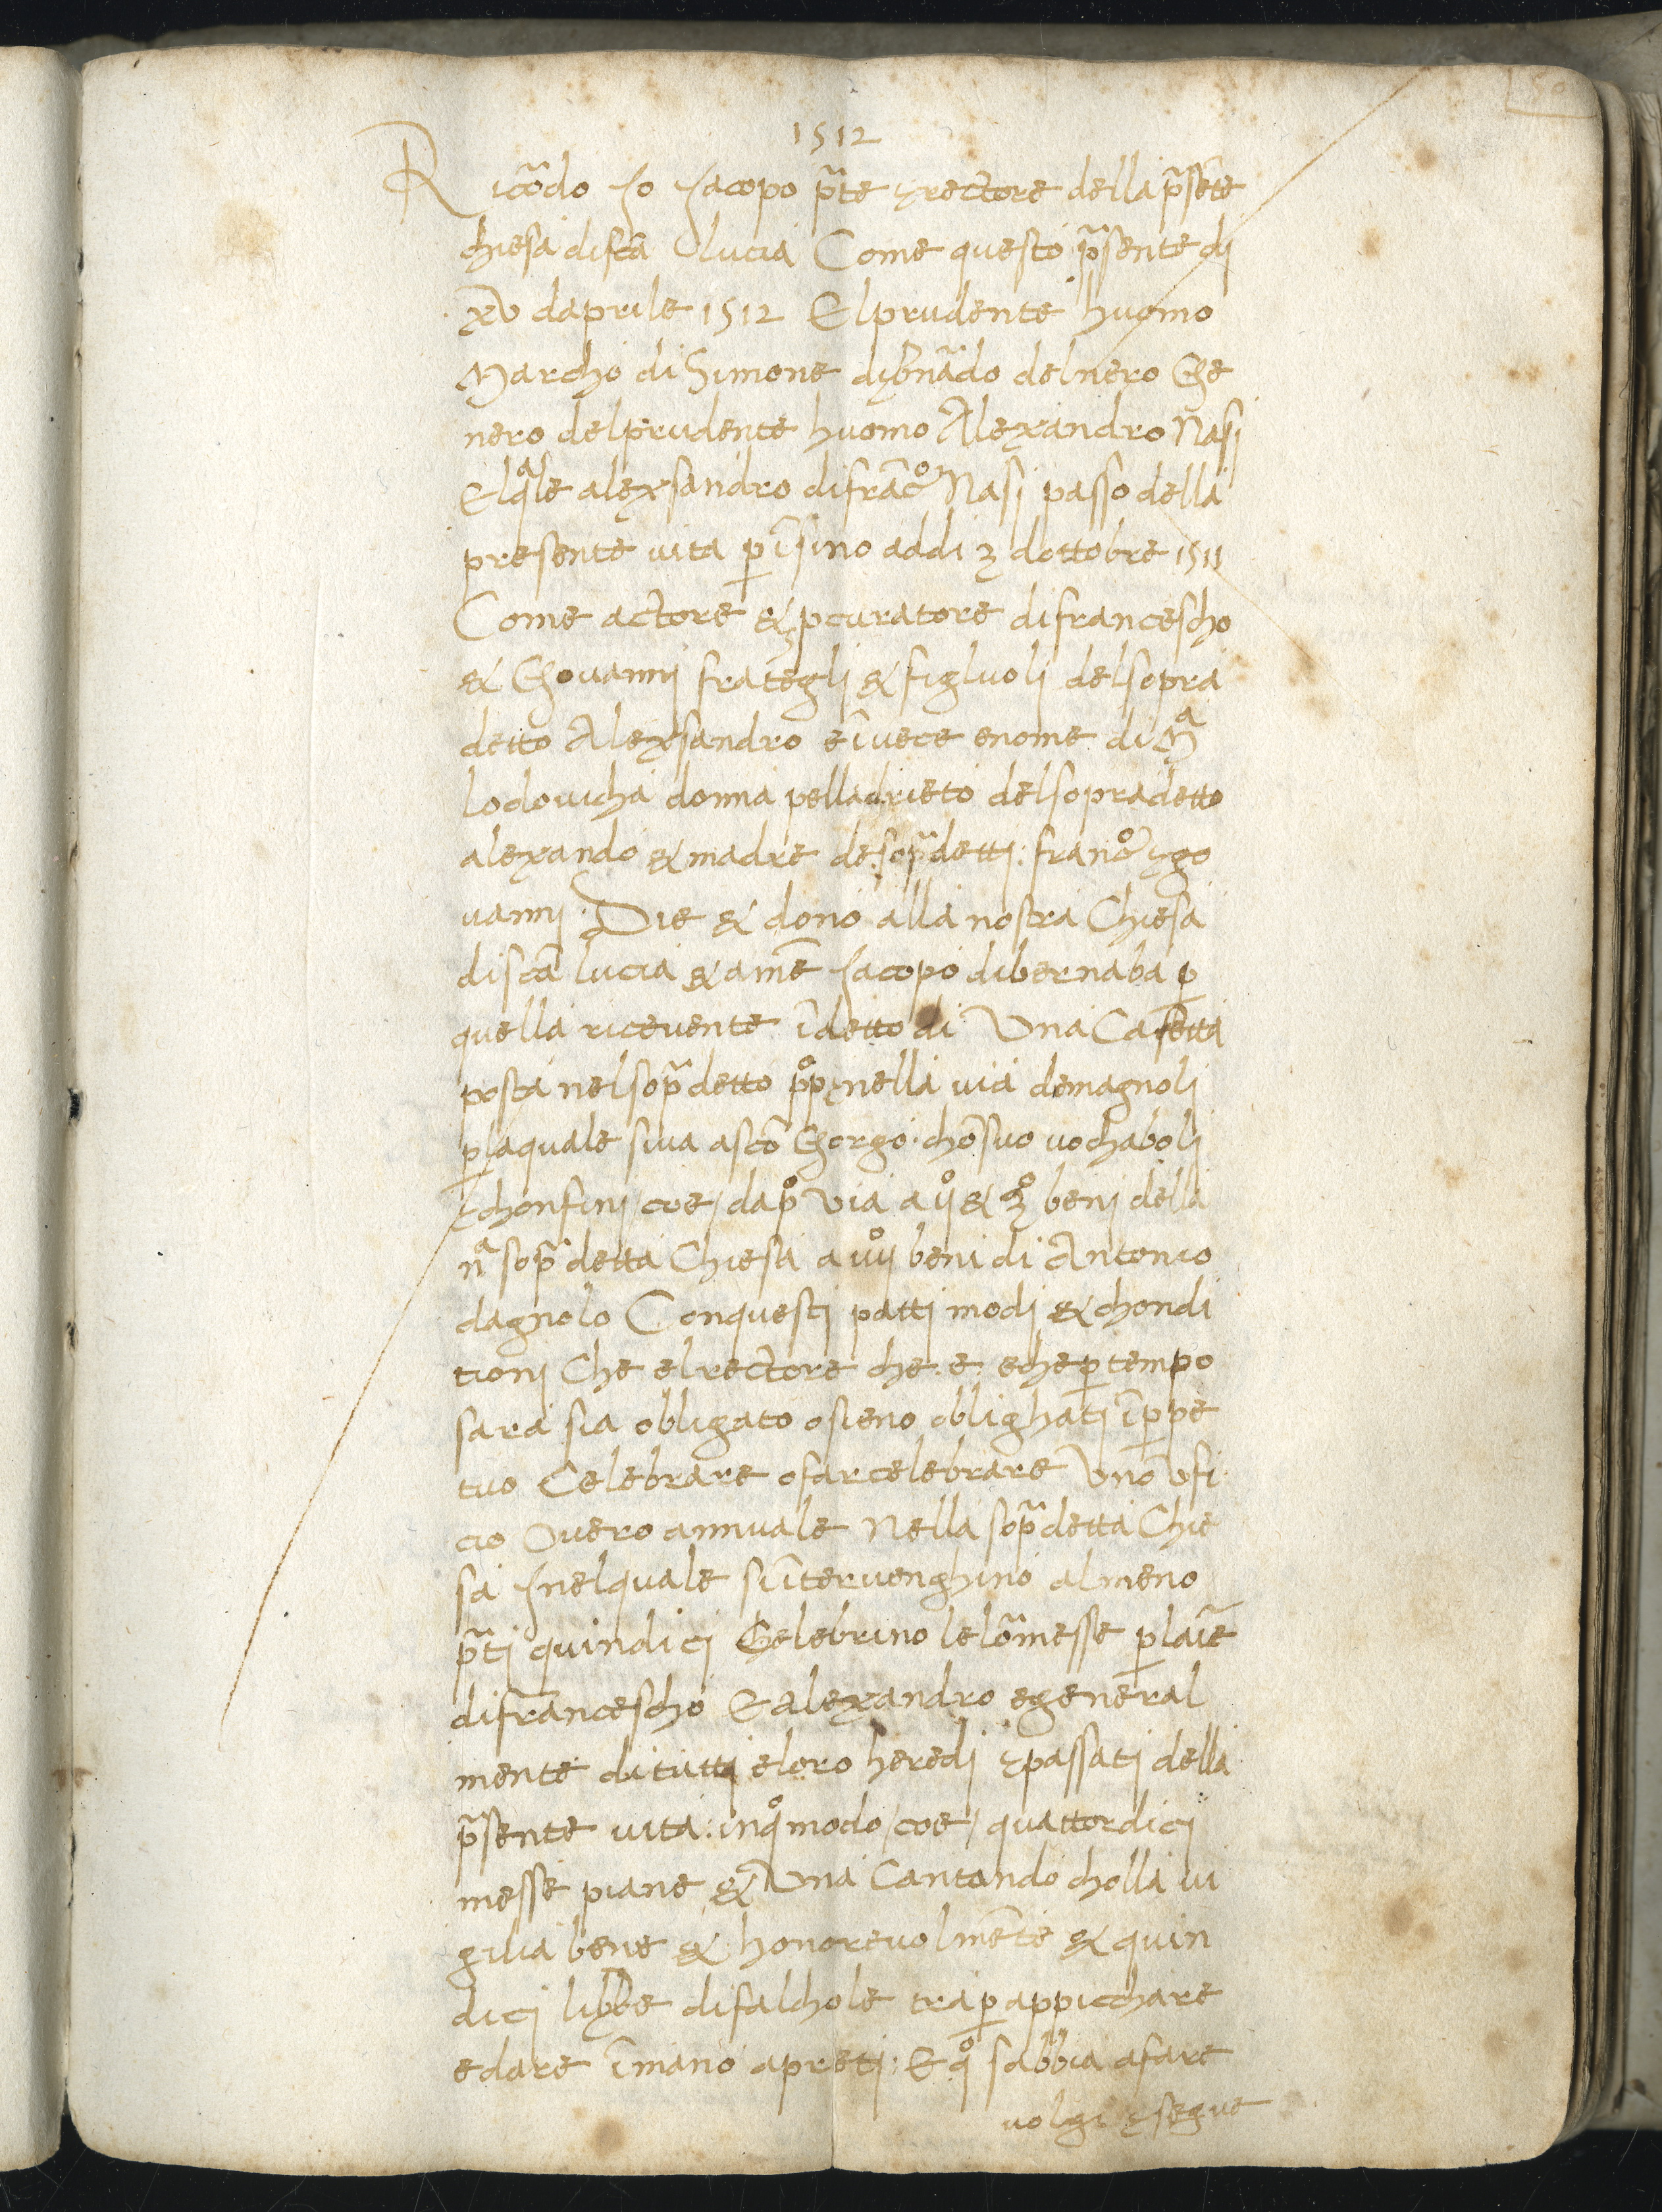 50
1512
Ricõdo Io Iacopo p̃te ⁊ rectore della p̃sẽte
chiesa di sc̃a Lucia Come questo p̃sente di
xv daprile 1512 El prudente huomo
Marcho di Simone di bñado del nero Ge
nero del prudente huomo Alexandro Nasi
El qͣle alexsandro di frãcͦ Nasi passo della
presente vita ꝑ ĩsino addi 3 dottobre 1511
Come actore & ꝓcuratore di francescho
& Giovanni frategli & figluoli del sopra
detto Alexsandro e ĩ vece e nome di Mͣ
lodovicha donna pella drieto del sopradetto
alexando & madre de sop̃detti: francͦ ⁊ go
vanni: Die & dono alla nostra Chiesa
di sc̃a lucia & a me Iacopo di bernaba ꝑ
quella ricevente ĩ detto di Una Casetta
posta nel sop̃detto pͦpͦ nella via de magnoli
ꝑ la quale si va a sc̃o Gorgo. chõ suo vochaboli
⁊ chonfini / cioe / da pͦ via a ijͦ & 3ͦ beni della
nͣ sop̃detta Chiesa a iiijͦ beni di Antonio
dagnolo Con questi patti modi & chondi
tioni Che el rectore che. e. e che ꝑ tempo
sara sia obligato o sieno oblighati ĩ ꝑpe
tuo Celebrare o far celebrare Uno Ufi
cio Overo annuale Nella sop̃detta Chie
sa Inel quale s ĩtervenghino almeno
p̃ti quindici Celebrino le lor̃ messe ꝑ laĩe
di francescho E alexandro e general
mente di tutti e loro heredi ⁊ passati della
p̃sente vita: in qͦ modo / cioe / quattordici
messe piane & Una Cantando cholla vi
gilia bene & honorevolmẽte & quin
dici libbre di falchole tra ꝑ appicchare
e dare ĩ mano a preti: E qͦ sabbia a fare
volgi ⁊ segue